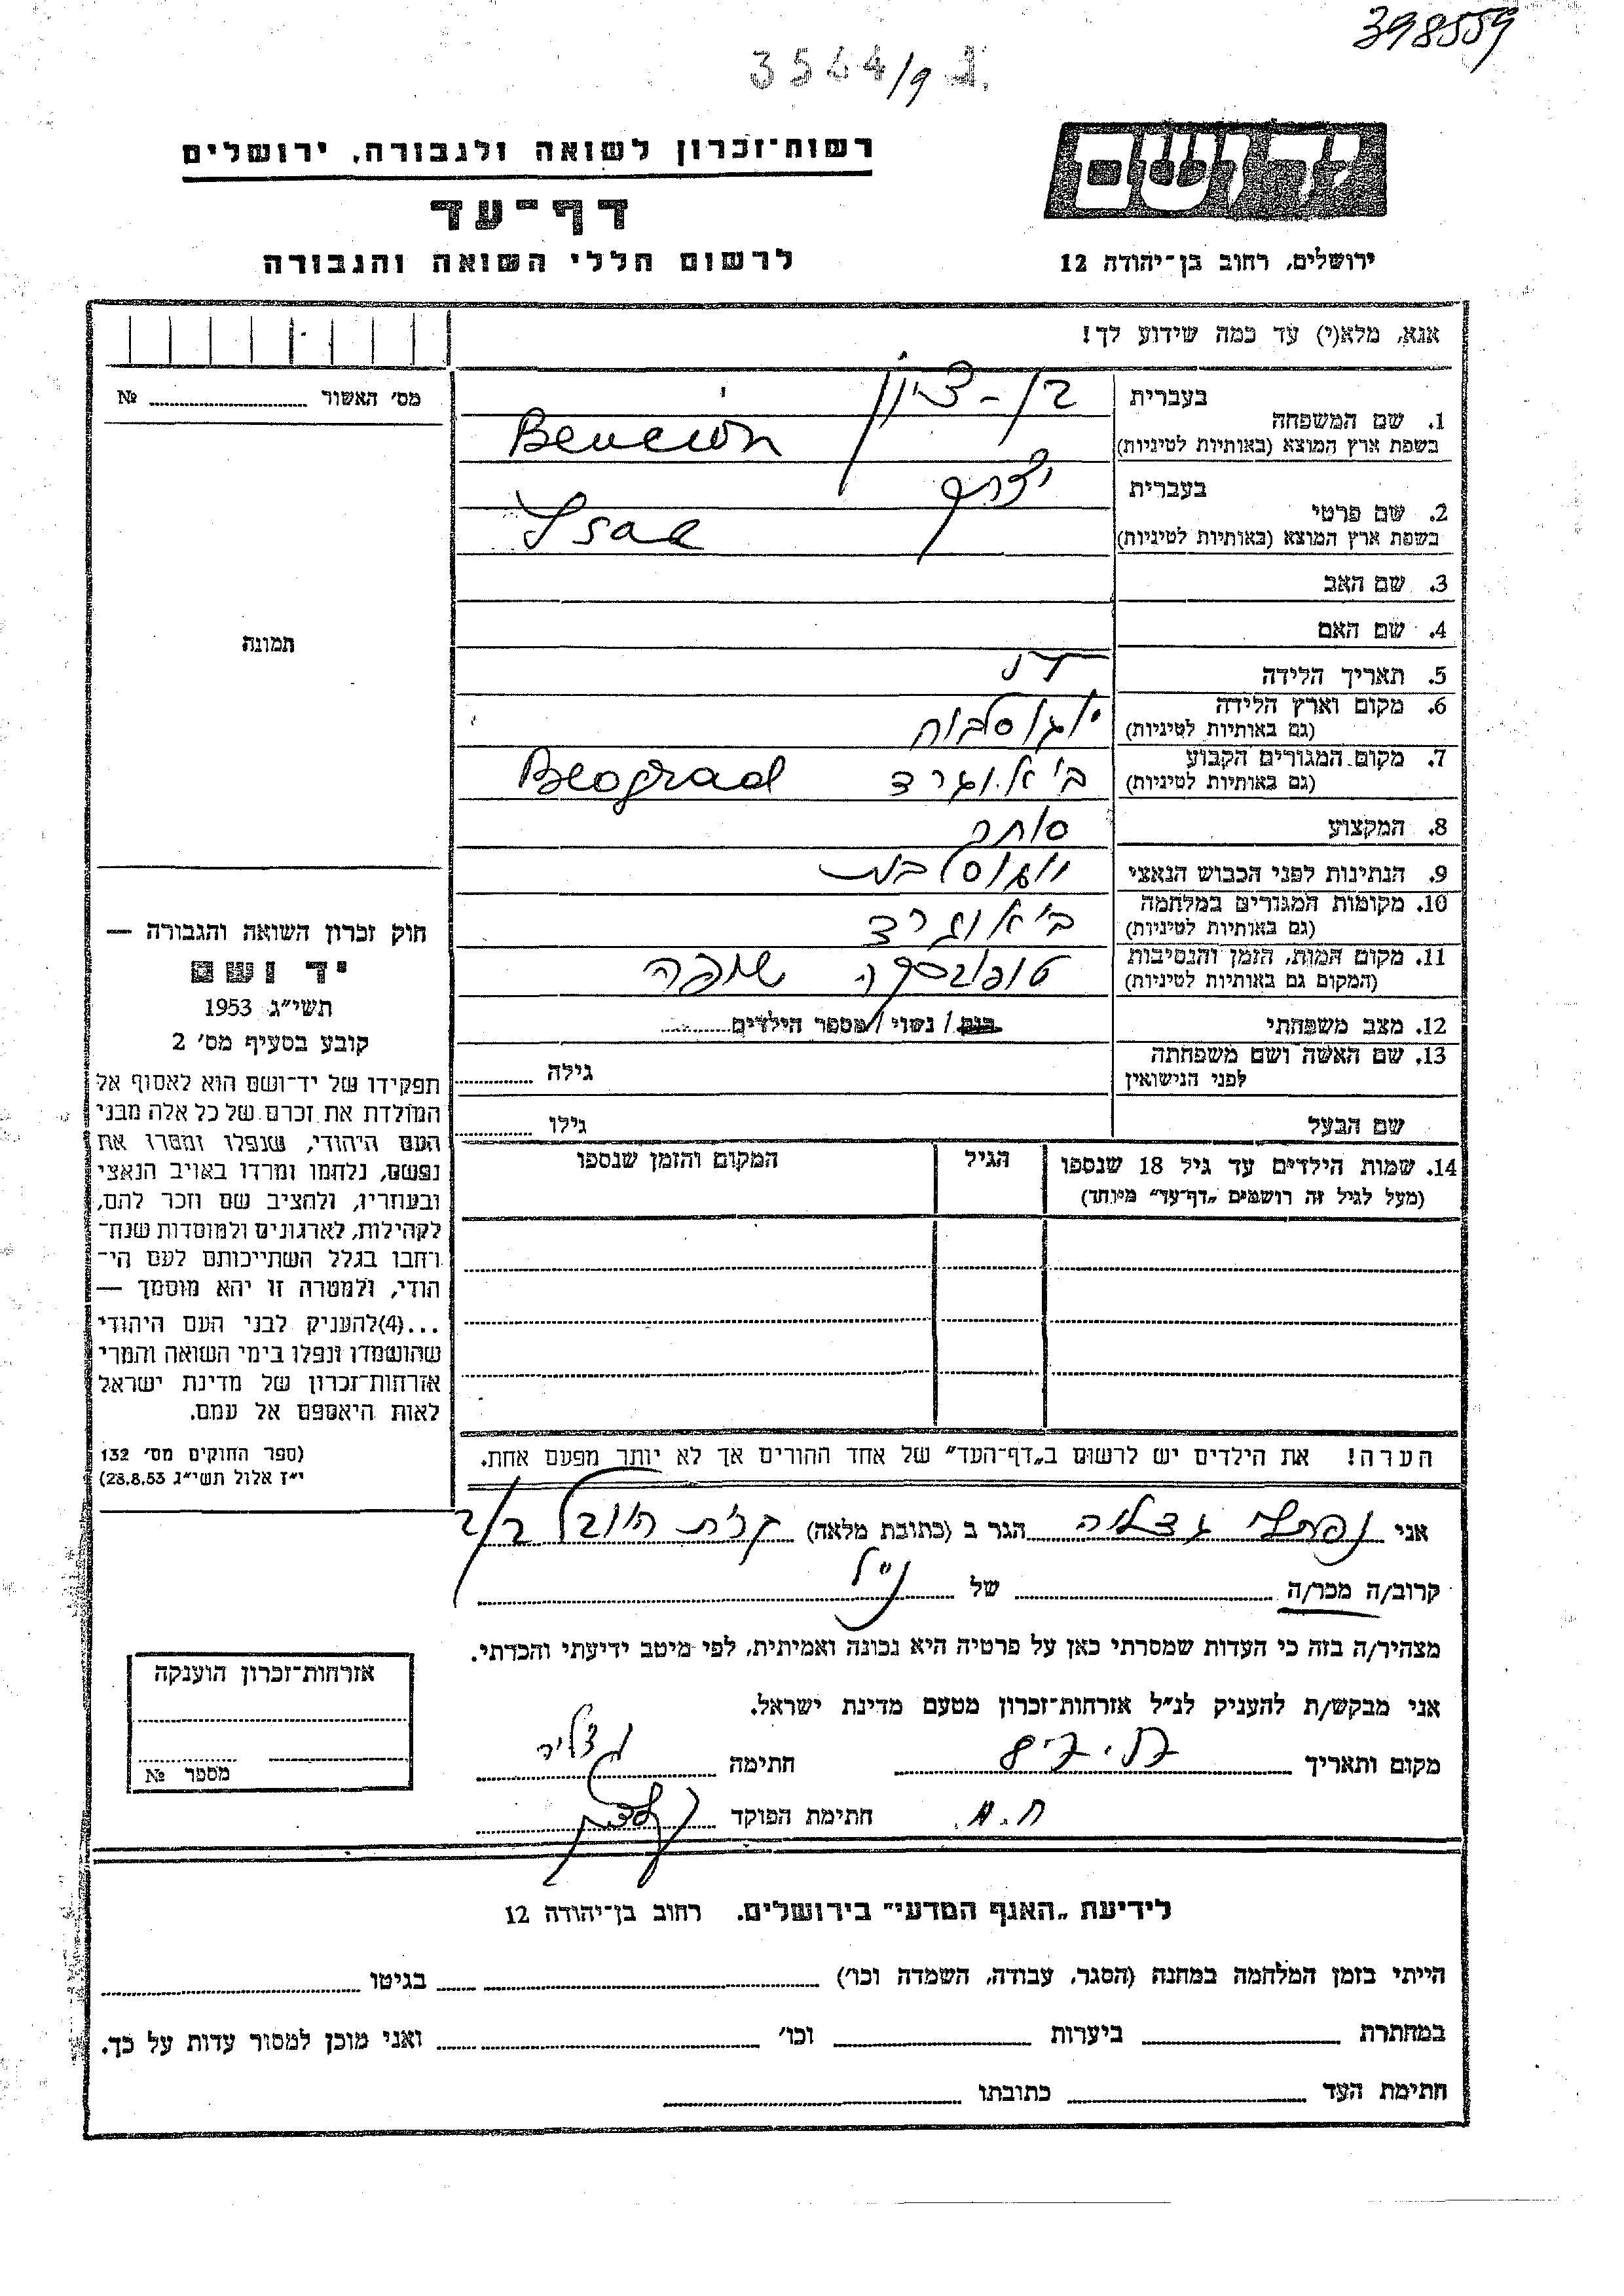 398559
3544/9
רשות־זכרון לשואה ולגבורה, ירושלים
דף־עד
לרשום חללי השואה והגבורה
יד ושם
ירושלים, רחוב בן־יהודה 12
אנא, מלא(י) עד כמה שידוע לך!
מס׳ האשור № 
תמונה
1. שם המשפחה בעברית בן-ציון
בשפת ארץ המוצא (באותיות לטיניות) Bencion
2. שם פרטי בעברית יצחק
בשפת ארץ המוצא (באותיות לטיניות) Isac
3. שם האב
4. שם האם
5. תאריך הלידה
6. מקום וארץ הלידה יוגוסלביה
(גם באותיות לטיניות)
7. מקום המגורים הקבוע ביאוגרד Beograd
(גם באותיות לטיניות)
8. המקצוע סוחר
9. הנתינות לפני הכבוש הנאצי יוגוסלבית
10. מקומות המגורים במלחמה ביאוגרד
(גם באותיות לטיניות)
11. מקום המות, הזמן והנסיבות טופובסקה שופה
(המקום גם באותיות לטיניות)
12. מצב משפחתי רווק / נשוי / מספר הילדים
13. שם האשה ושם משפחתה גילה
לפני הנישואין
שם הבעל גילו
14. שמות הילדים עד גיל 18 שנספו הגיל המקום והזמן שנספו
(מעל לגיל זה רושמים „דף־עד״ מיוחד)
הערה! את הילדים יש לרשום ב„דף־העד״ של אחד ההורים אך לא יותר מפעם אחת.
חוק זכרון השואה והגבורה —
יד ושם
תשי״ג 1953
קובע בסעיף מס׳ 2
תפקידו של יד־ושם הוא לאסוף אל
המולדת את זכרם של כל אלה מבני
העם היהודי, שנפלו ומסרו את
נפשם, נלחמו ומרדו באויב הנאצי
ובעוזריו, ולהציב שם וזכר להם,
לקהילות, לארגונים ולמוסדות שנח־
רחבו בגלל השתייכותם לעם הי־
הודי, ולמטרה זו יהא מוסמך —
...(4)להעניק לבני העם היהודי
שהושמדו ונפלו בימי השואה והמרי
אזרחות־זכרון של מדינת ישראל
לאות היאספם אל עמם.
(ספר החוקים מס׳ 132
י״ז אלול תשי״ג 28.8.53)
אני נפתלי גדליה הגר ב (כתובת מלאה) קרית היובל
קרוב/ה מכר/ה של הנ״ל
מצהיר/ה בזה כי העדות שמסרתי כאן על פרטיה היא נכונה ואמיתית, לפי מיטב ידיעתי והכרתי.
אני מבקש/ת להעניק לנ״ל אזרחות־זכרון מטעם מדינת ישראל.
מקום ותאריך חתימה גדליה
חתימת הפוקד
אזרחות־זכרון הוענקה
מספר №
לידיעת „האגף המדעי״ בירושלים. רחוב בן־יהודה 12
הייתי בזמן המלחמה במחנה (הסגר, עבודה, השמדה וכו׳) בגיטו
במחתרת ביערות וכו׳ ואני מוכן למסור עדות על כך.
חתימת העד כתובתו